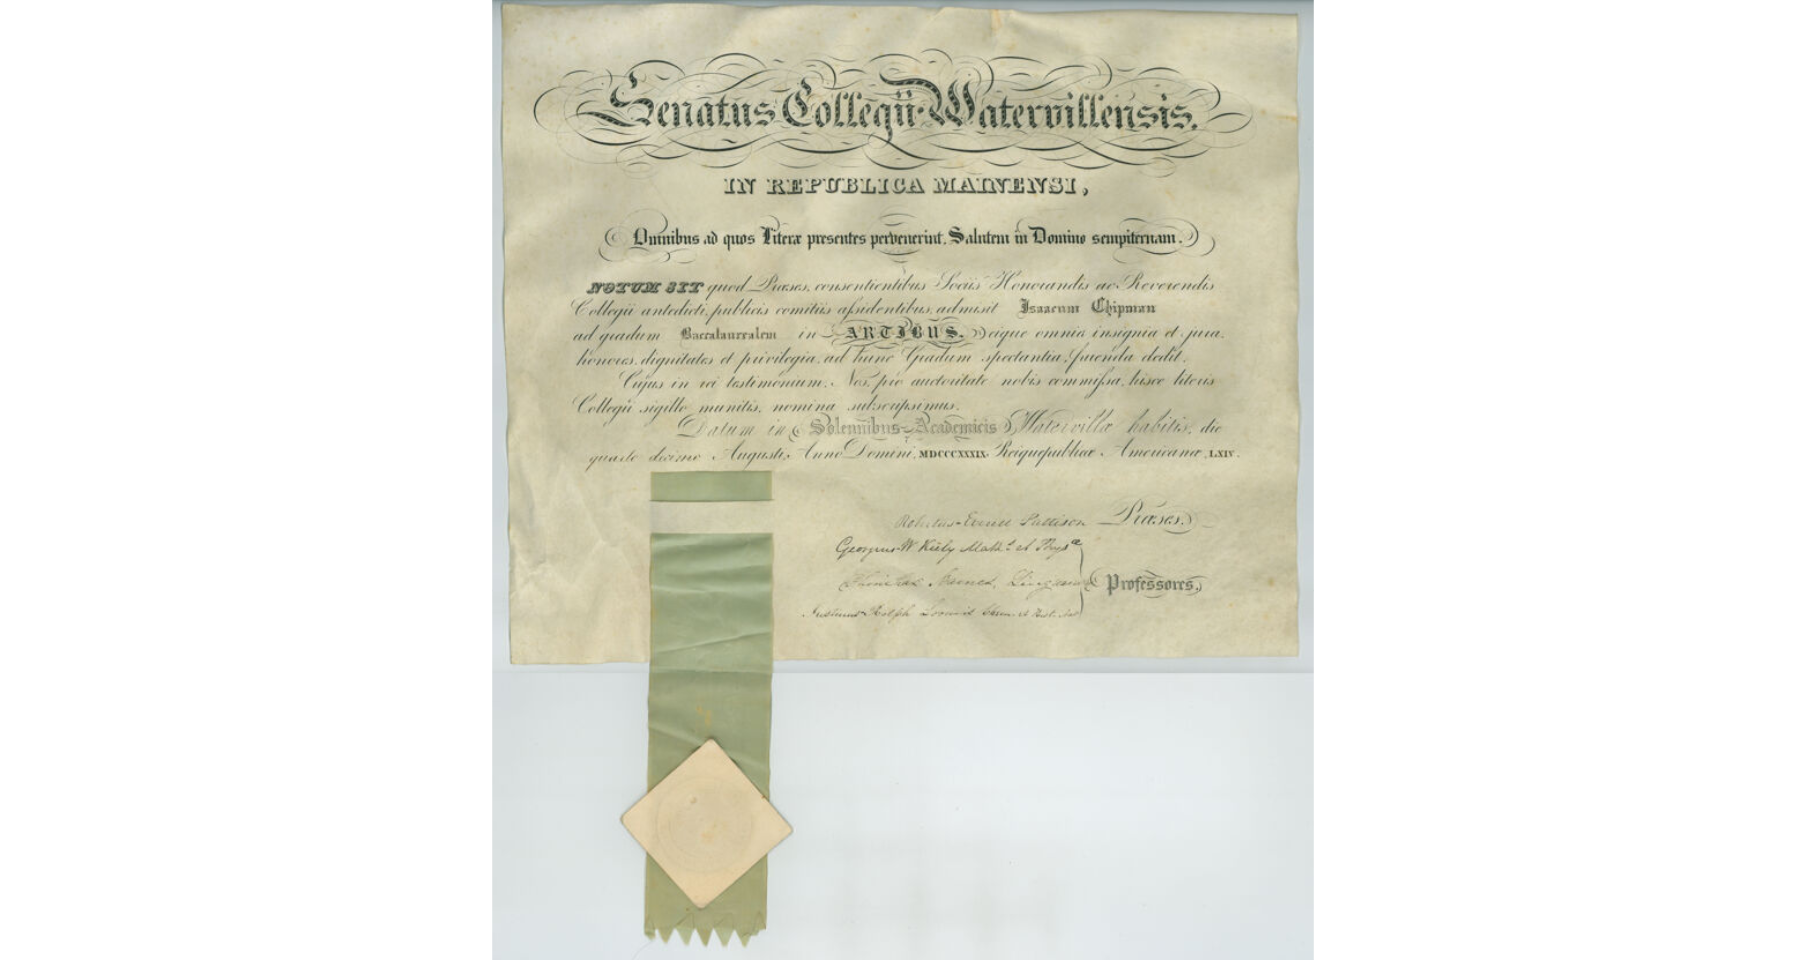 Senatus Collegii Watervillensis.
IN REPUBLICA MAINENSI,
Omnibus ad quos Literæ presentes pervenerint, Salutem in Domino sempiternam.
NOTUM SIT quod Præses, consentientibus Sociis Honorandis ac Reverendis
Collegii antedicti, publicis comitiis assidentibus, admisit Isaacum Chipman
ad gradum Baccalaurealem in ARTIBUS, eique omnia insignia et jura,
honores, dignitates et privilegia, ad hunc Gradum spectantia, fruenda dedit.
Cujus in rei testimonium, Nos, pro auctoritate nobis commissa, hisce literis
Collegii sigillo munitis, nomina subscripsimus.
Datum in Solennibus Academicis Watervillæ habitis, die
quarto decimo Augusti, Anno Domini, MDCCCXXXIX. Reiquepublicæ Americanæ, LXIV.
Pattison Præses.
Georgius W Math. et Phys
Professores,
Justinus Rolph Loomis Chem. et Hist. Nat